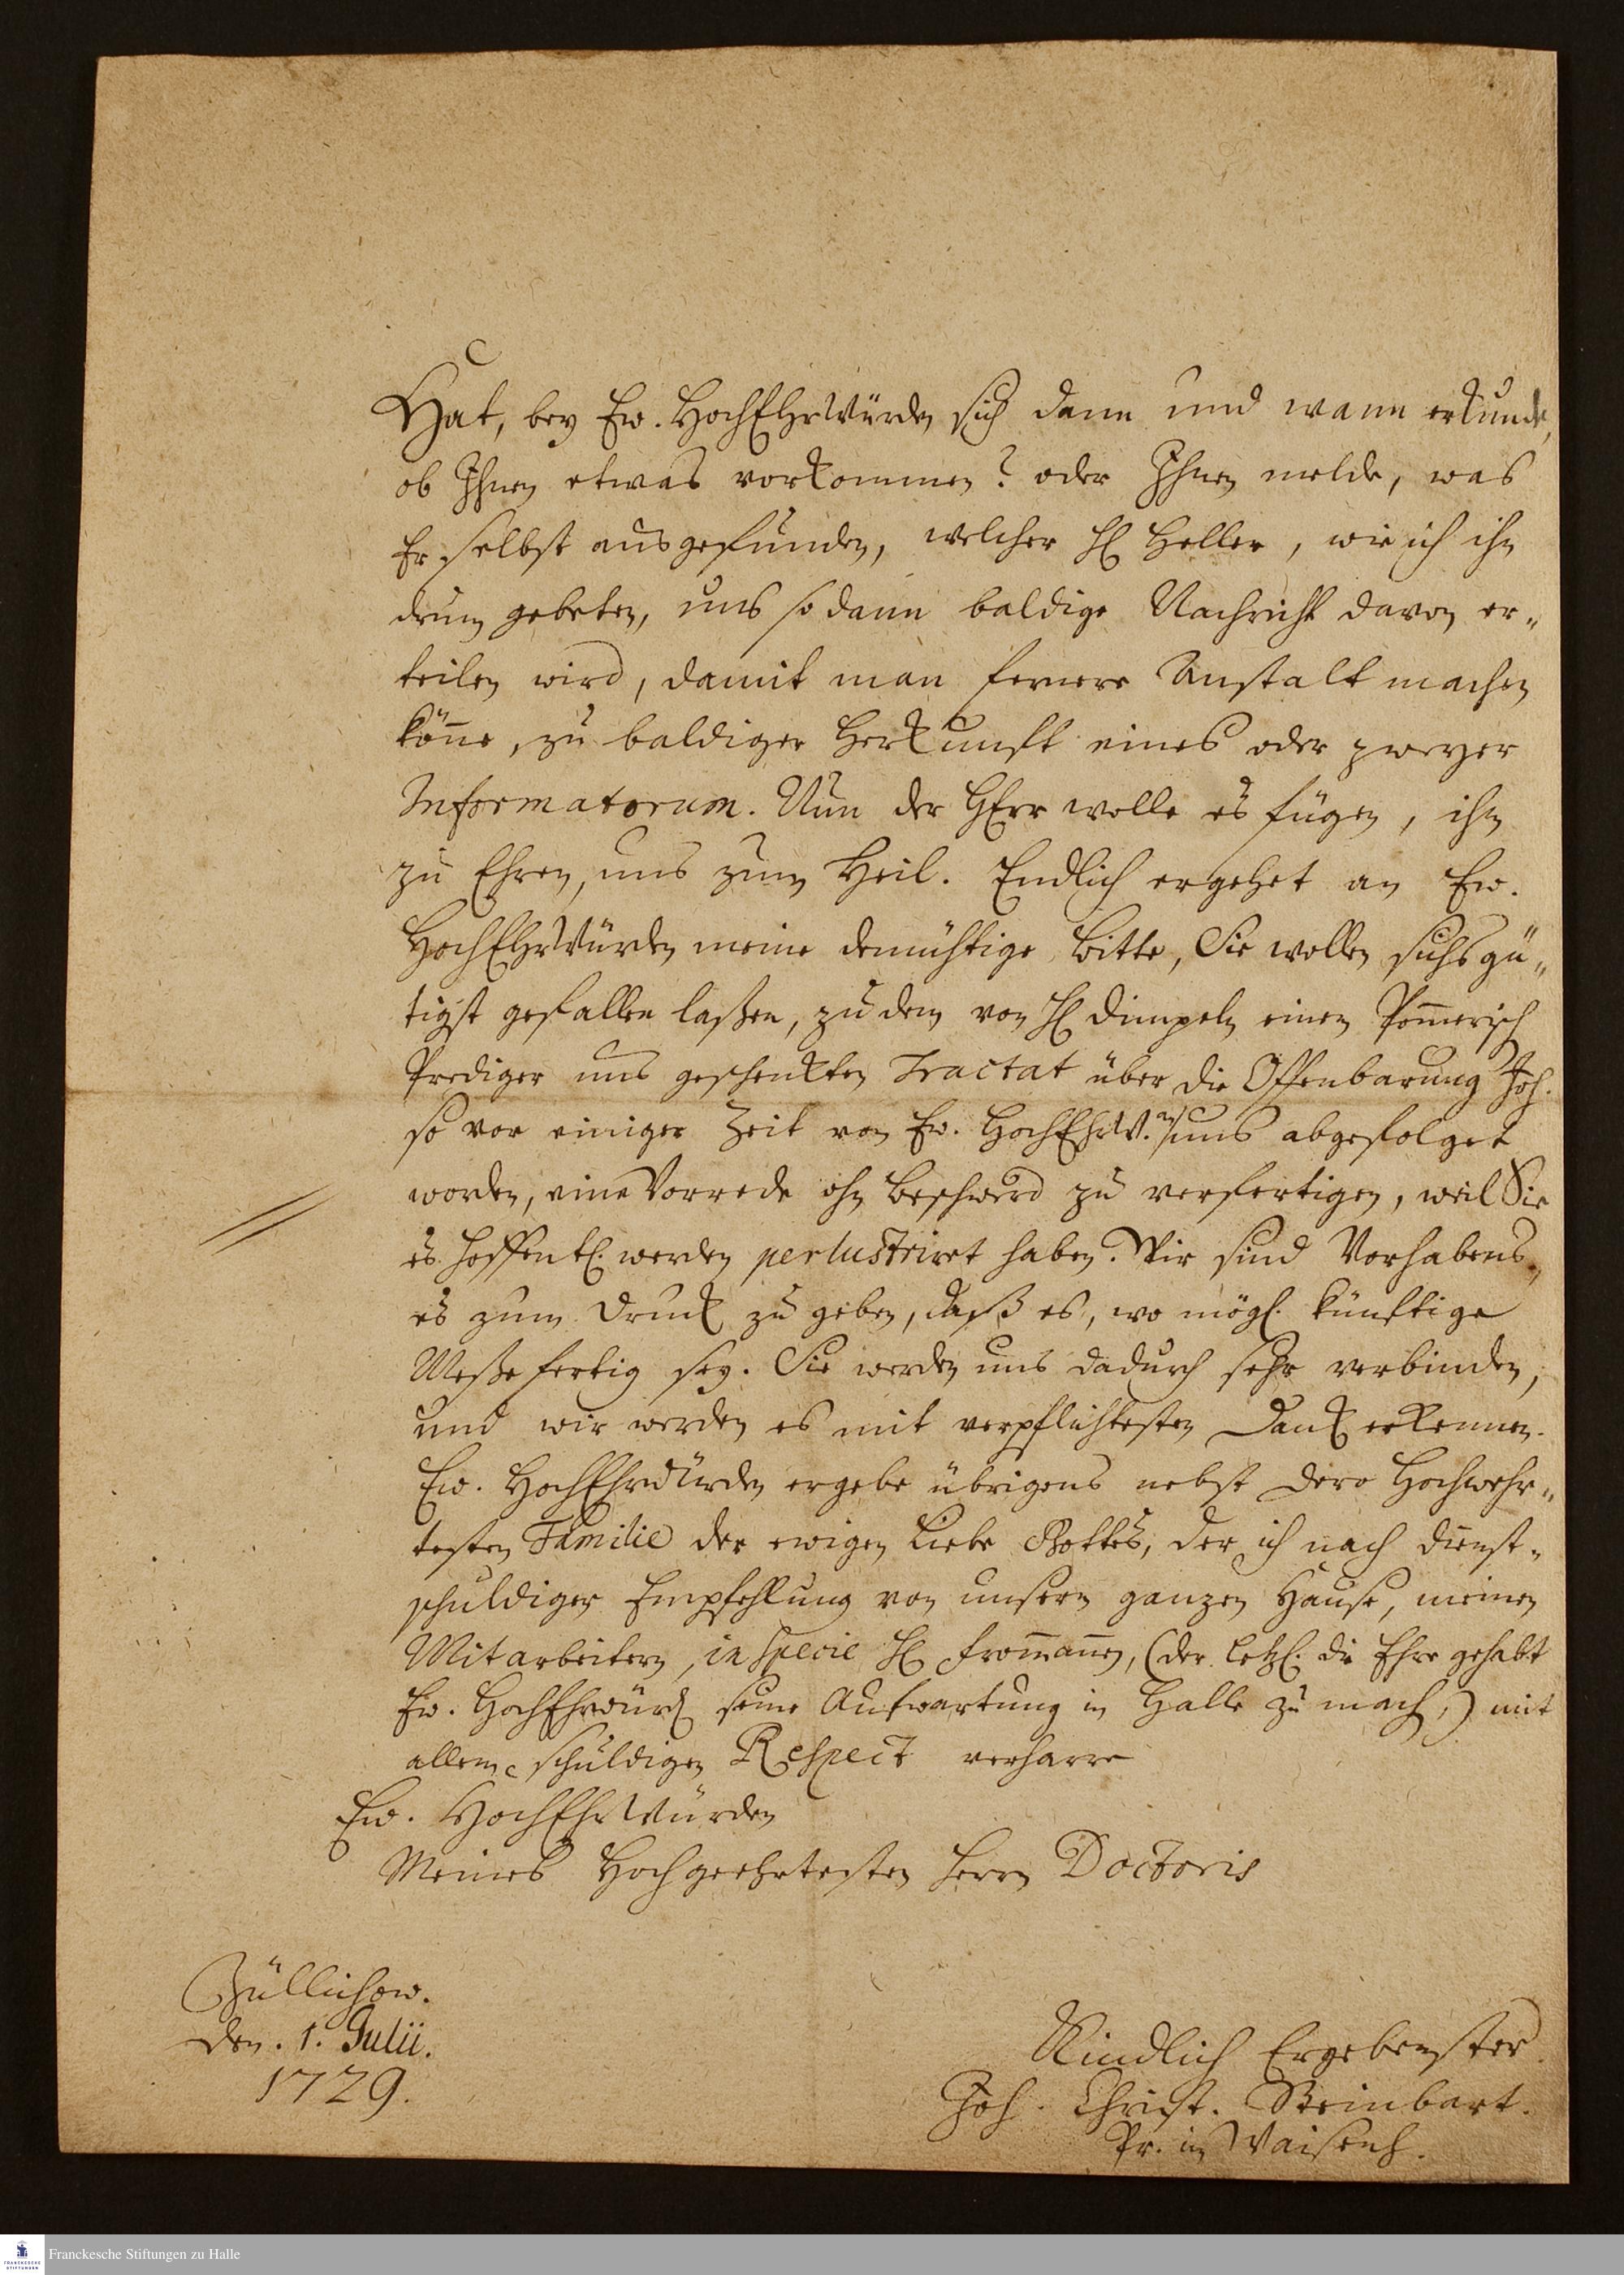 Hat, bey Ew. HochEhrWürden sich dann und wann erkunde,
ob Ihnen etwas vorkommen? oder Ihnen melde, was
Er selbst ausgefunden, welcher H. Heller, wie ich ihn
drum gebeten, uns sodann baldige Nachricht davon er„
teilen wird, damit man fernere Anstalt machen
könne, zu baldiger Herkunft eines oder zweyer
Informatorum. Nun der HErr wolle es fügen, ihm
zu Ehren, uns zum Heil. Endlich ergehet an Ew.
HochEhrWürden meine demühtige Bitte, Sie wollen sichs gü„
tigst gefallen laßen, zu dem von H. Dimpeln einen Pom̄erisch
Prediger uns geschenkten Tractat über die Offenbarung Joh.
so vor einiger Zeit von Ew. HochEhrW. an uns abgefolget
worden, eine Vorrede ohn Beschwerd zu verfertigen, weil Sie
es hoffentl. werden perlustriret haben. Wir sind Vorhabens,
es zum Druck zu geben, daß es, wo mögl. künftige
Meße fertig sey. Sie werden uns dadurch sehr verbinden,
und wir werden es mit verpflichtesten Dank erkennen.
Ew. HochEhrwürden ergebe übrigens nebst Dero Hochwehr„
testen Familie der ewigen Liebe Gottes, der ich nach dienst„
schuldiger Empfehlung von unsern ganzen Hause, meinen
Mitarbeitern, in specie H. From̄an̄en, (der letzl. die Ehre gehabt
Ew. HochEhrwürd. seine Aufwartung in Halle zu mach,) mit
allem schuldigen Respect verharre
Ew. HochEhrWürden
Meines Hochgeehrtesten Herrn Doctoris
Züllichow.
den. 1. Julii.
1729.
Kindlich Ergebenster
Joh. Christ. Steinbart.
Pr. im Waisenh.
Franckesche Stiftungen zu Halle